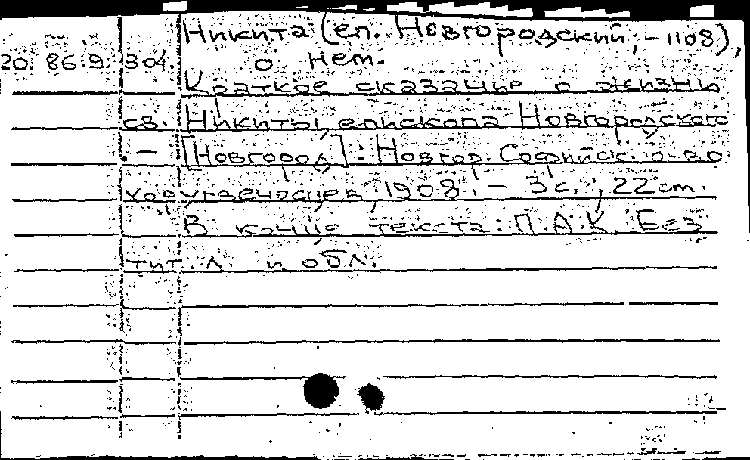 Никита (еп. Новгородский, -1108),
20. 86.9. 304. о нем.
Краткое сказание о жизни
св. Никиты, епископа Новгородского
. – [Новгород] : Новгор. Софийск. о-во
хоругвеносцев, 1908. – 3 с.; 22 см.
В конце текста: П.А.К. Без
тит. л. и обл.